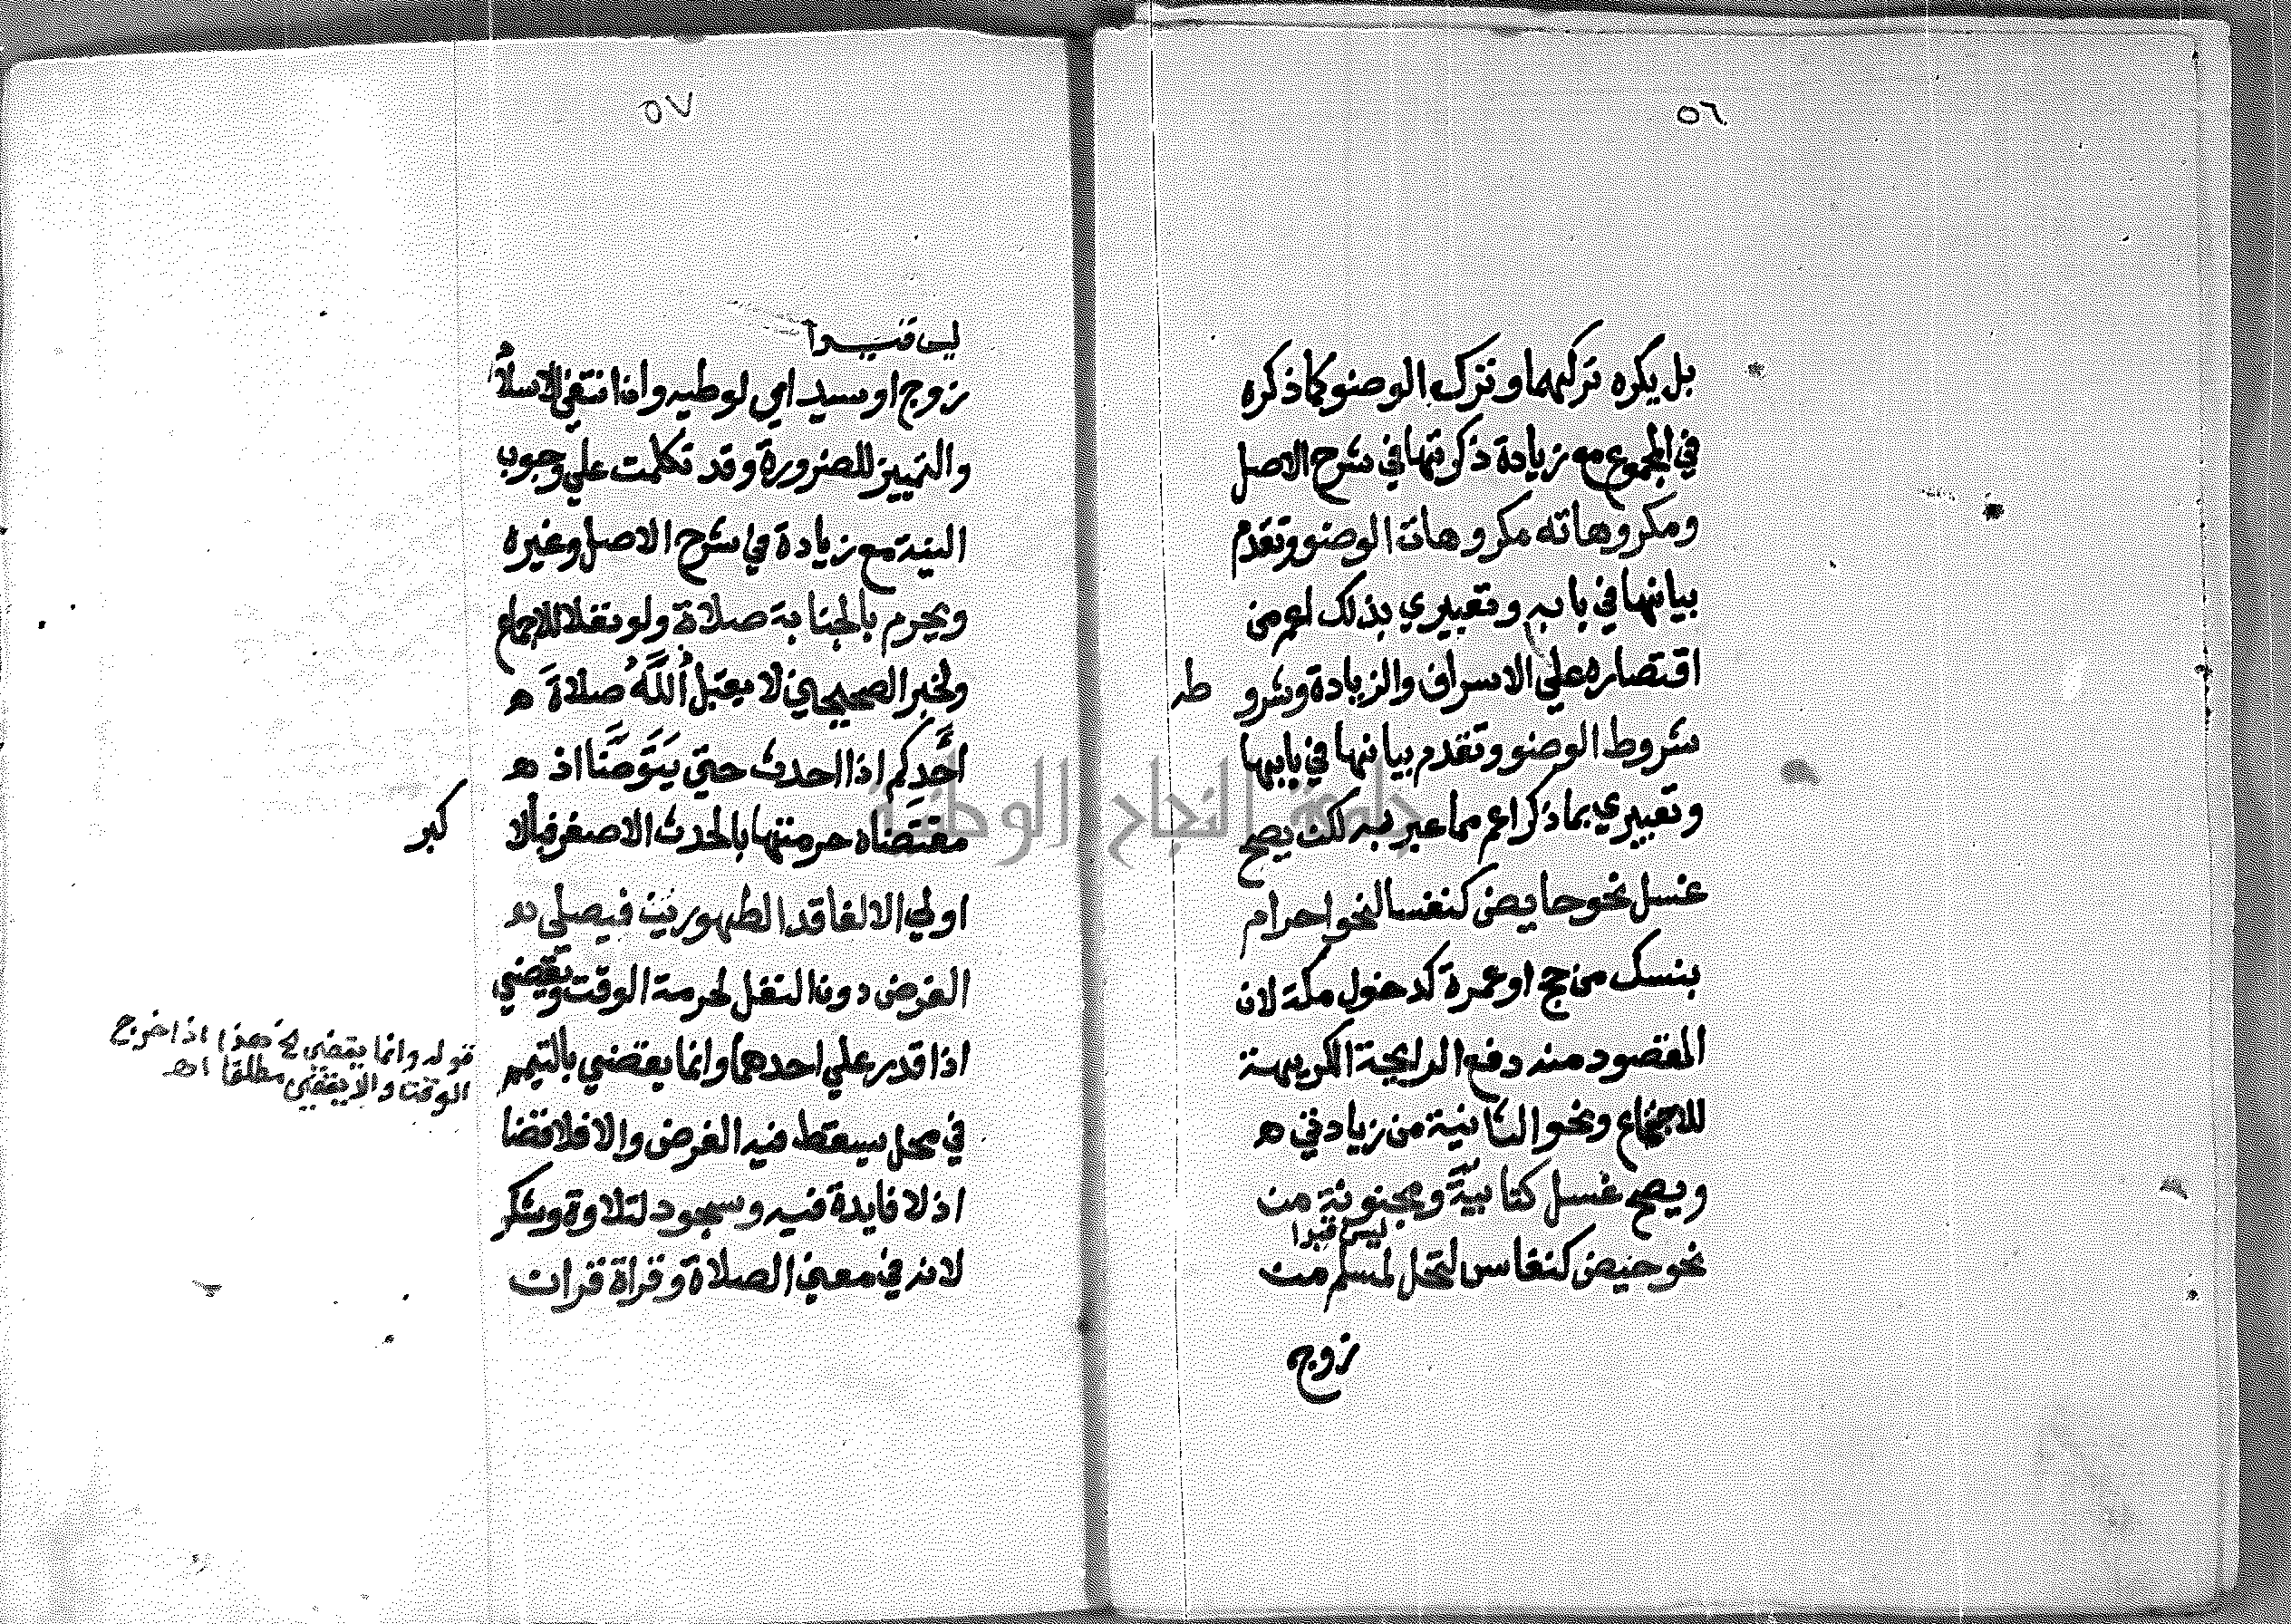 ٥٦
بل يكره تركهما وترك الوضو كما ذكره
في المجموع مع زيادة ذكرتها في شرح الاصل
ومكروهاته مكروهات الوضو وتقدم
بيانها في بابه وتعبيري بذلك اعم من
اقتصاره علي الاسراف والزيادة وشرو طه
شروط الوضو وتقدم بيانها في بابها
وتعبيري بما ذكر اعم مما عبر به لكن يصح
غسل نحو حايض كنفسا لنحو احرام
بنسك من حج او عمرة كدخول مكة لان
المقصود منه دفع الرايحة الكريهة
للاجتماع ونحو الثانية من زيادتي ه
ويصح غسل كتابية ومجنونة من
ليس قيدا
نحو حيض كنفاس لتحل لمسلم من
زوج
٥٧
ليس قيدا
زوج او سيد اي لوطيه وان انتفي الاسلام
والتمييز للضرورة وقد تكلمت علي وجوب
النية مع زيادة في شرح الاصل وغيره
ويحرم بالجنابة صلاة ولو نفلا للاجماع
ولخبر الصحيحين لا يقبل اللَّهُ صلاةَ ه
أحَدِكم اذا احدث حتي يَتَوَضَّأ اذ ه
مقتضاه حرمتها بالحدث الاصغر فبالا كبر
اولي الا لفاقد الطهورين فيصلي ه
الفرض دون النفل لحرمة الوقت ويقضي
اذا قدر علي احدهما وانما يقضي بالتيمم
في محل يسقط فيه الفرض والا فلا قضا
اذ لا فايدة فيه وسجود لتلاوة وشكر
لانه في معني الصلاة وقراة قران
قوله وانما يقضي الخ هذا اذا خرج
الوقت والا يقضي مطلقا اهـ
جامعة النجاح الوطنية